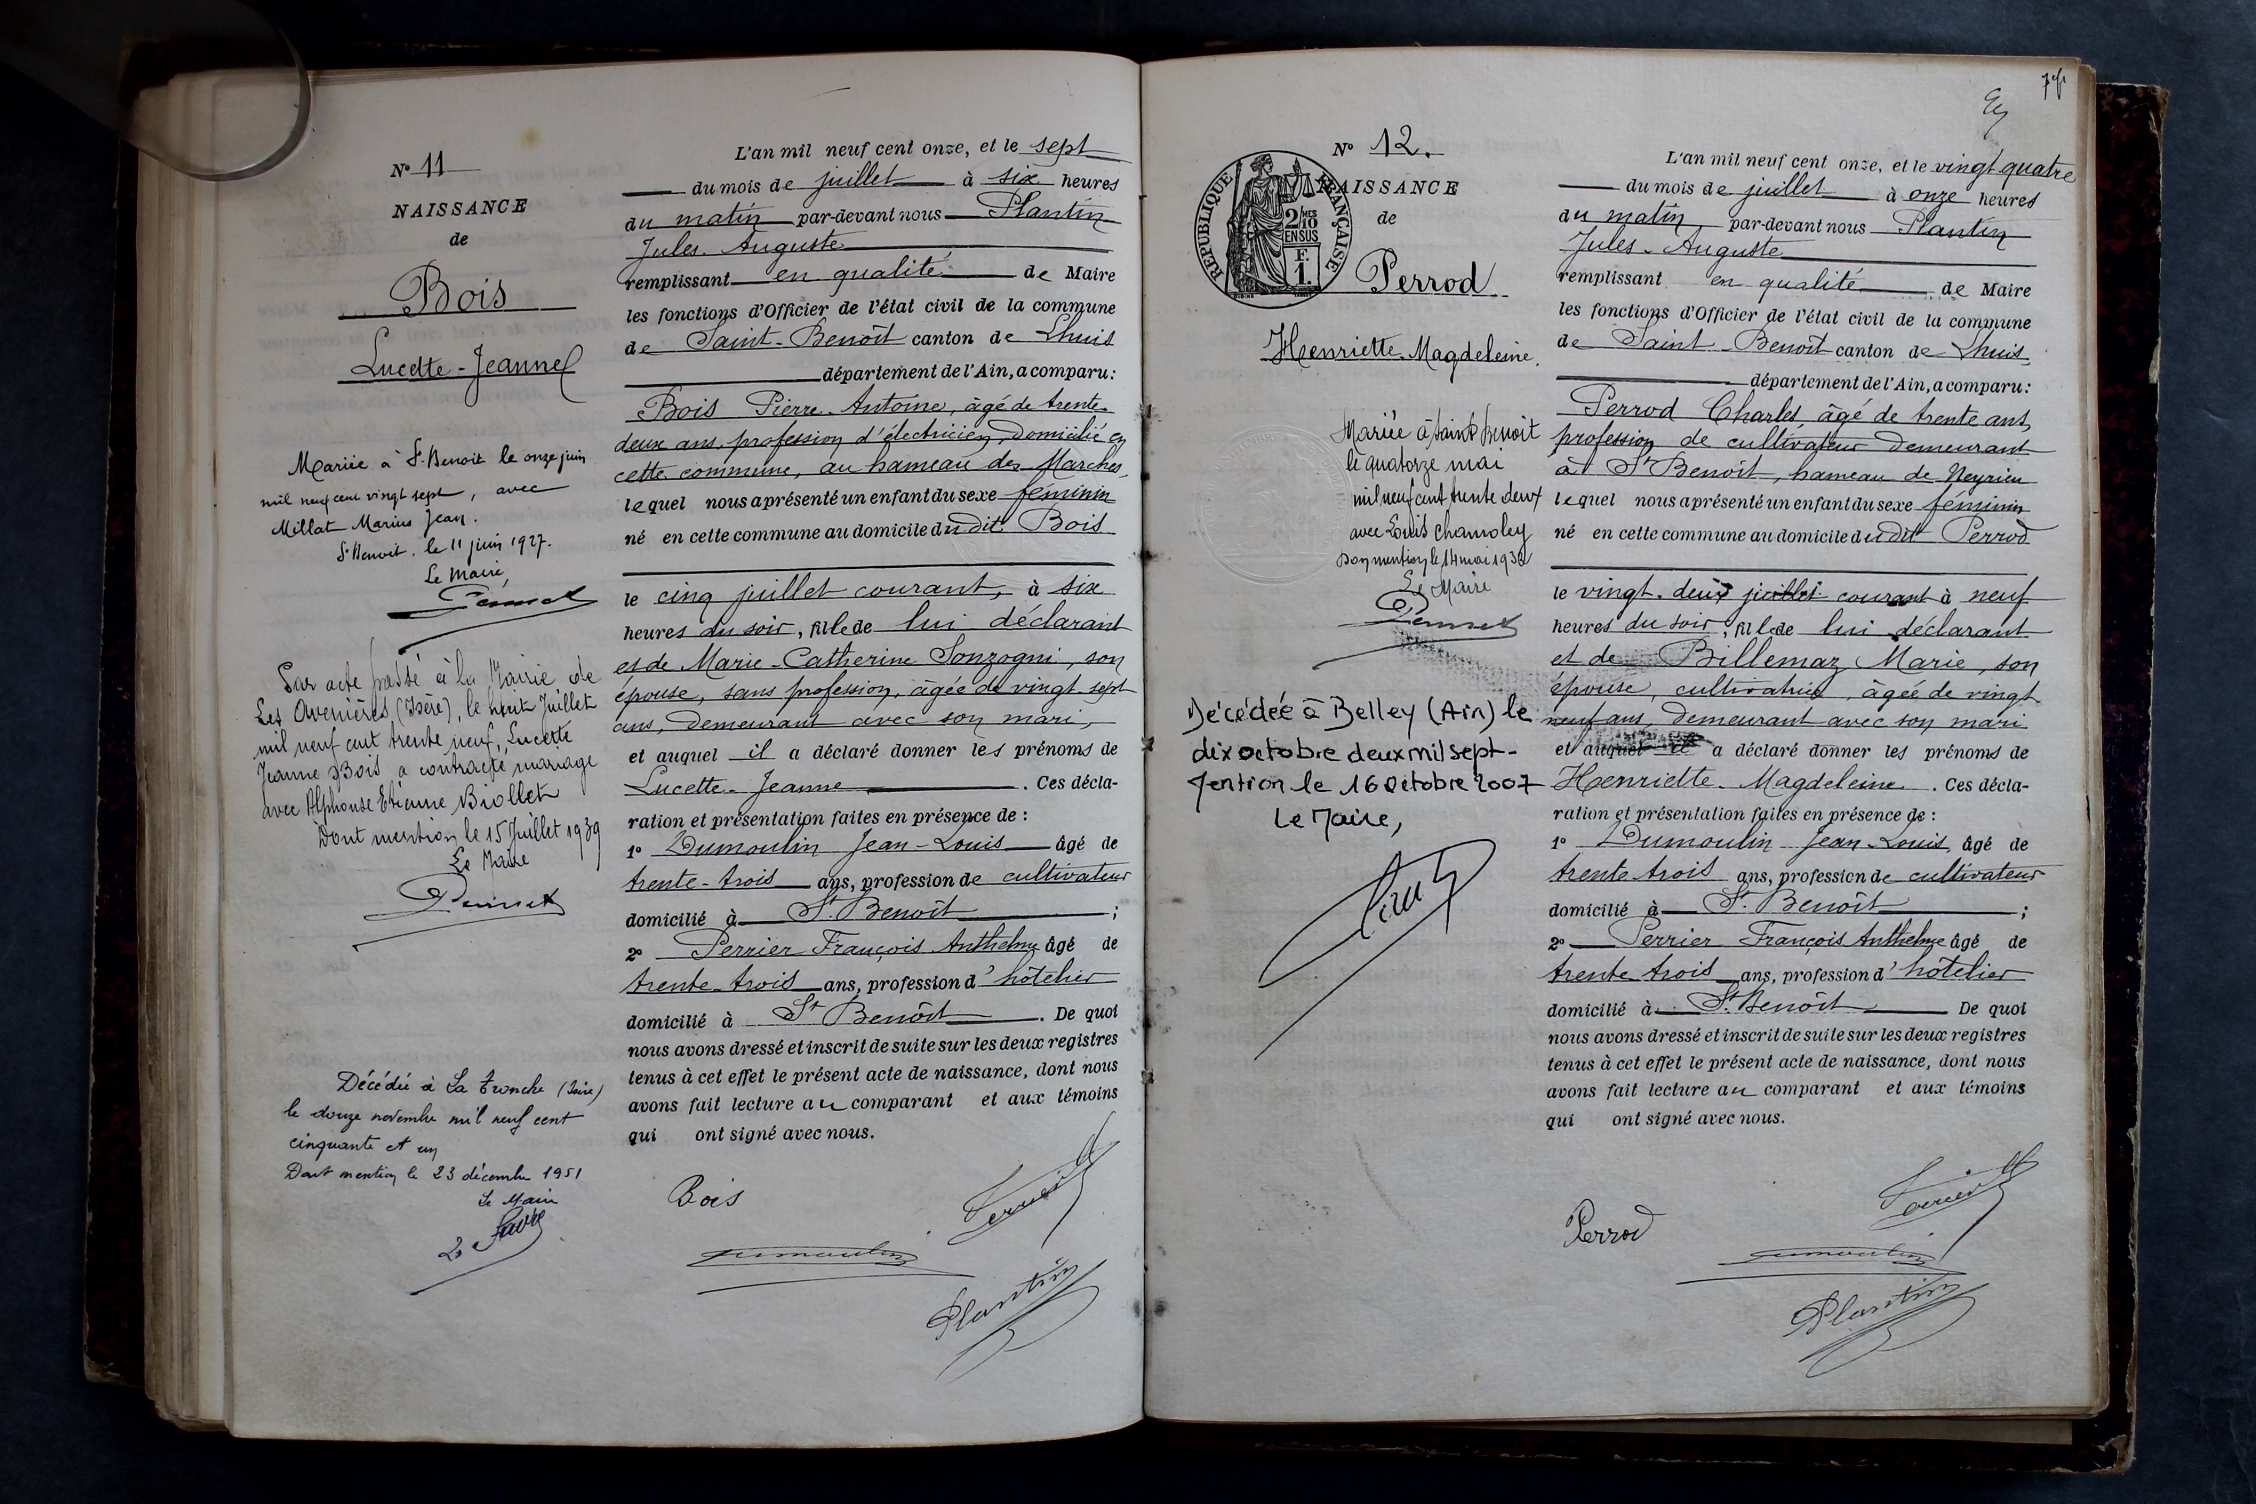 Nº 11
NAISSANCE
de
Bois
Lucette - Jeanne
Mariée à St. Benoit le onze juin
mil neuf cent vingt sept, avec
Millat Marius Jean.
St Benoit, le 11 juin 1927.
Le Maire,
Par acte passé à la Mairie de
Les Avenières, (Isère), le huit Juillet
mil neuf cent trente neuf, Lucette
Jeanne Bois a contracté mariage
avec Alphonse Etienne Biollet
Dont mention le 15 Juillet 1939
Le Maire
Décédée à La Tronche (Isère)
le douze novembre mil neuf cent
cinquante et un
Dont mention le 23 décembre 1951
Le Maire
L'an mil neuf cent onze, et le sept
du mois de juillet à six heures
du matin par-devant nous Plantin
Jules-Auguste
remplissant en qualité de Maire
les fonctions d'Officier de l'état civil de la commune
de Saint-Benoît canton de Lhuis
département de l'Ain, a comparu:
Bois Pierre-Antoine, âgé de trente-
deux ans, profession d'électricien, domicilié en
cette commune, au hameau des Marches,
lequel nous a présenté un enfant du sexe féminin
né en cette commune au domicile dudit Bois
le cinq juillet courant, à six
heures du soir, fille de lui déclarant
et de Marie-Catherine Sonzogni, son
épouse, sans profession, âgée de vingt sept
ans, demeurant avec son mari,
et auquel il a déclaré donner les prénoms de
Lucette-Jeanne . Ces décla-
ration et présentation faites en présence de :
1º Dumoulin Jean-Louis âgé de
trente-trois ans, profession de cultivateur
domicilié à St. Benoît ;
2º Perrier François Anthelme âgé de
trente-trois ans, profession d'hôtelier
domicilié à St Benoît . De quoi
nous avons dressé et inscrit de suite sur les deux registres
tenus à cet effet le présent acte de naissance, dont nous
avons fait lecture au comparant et aux témoins
qui ont signé avec nous.
Bois
Perrier
Dumoulin
Plantin
Nº 12.
NAISSANCE
de
RÉPUBLIQUE FRANÇAISE
2/10 MES
EN SUS
F.
1.
Perrod
Henriette-Magdeleine.
Mariée à Saint Benoit
le quatorze mai
mil neuf cent trente deux
avec Louis Chamoley
Don mention le 14 mai 1932
Le Maire
Décédée à Belley (Ain) le
dix octobre deux mil sept -
Mention le 16 Octobre 2007
Le Maire,
L'an mil neuf cent onze, et le vingt quatre
du mois de juillet à onze heures
du matin par-devant nous Plantin
Jules-Auguste
remplissant en qualité de Maire
les fonctions d'Officier de l'état civil de la commune
de Saint-Benoît canton de Lhuis
département de l'Ain, a comparu:
Perrod Charles âgé de trente ans,
profession de cultivateur demeurant
à St Benoît, hameau de Neyrieu
lequel nous a présenté un enfant du sexe féminin
né en cette commune au domicile dudit Perrod
le vingt-deux juillet courant à neuf
heures du soir, fille de lui déclarant
et de Billemaz Marie, son
épouse, cultivatrice, âgée de vingt
neuf ans, demeurant avec son mari
et auquel il a déclaré donner les prénoms de
Henriette-Magdeleine . Ces décla-
ration et présentation faites en présence de :
1º Dumoulin Jean-Louis, âgé de
trente trois ans, profession de cultivateur
domicilié à St. Benoît ;
2º Perrier François Anthelme âgé de
trente trois ans, profession d'hôtelier
domicilié à St. Benoît De quoi
nous avons dressé et inscrit de suite sur les deux registres
tenus à cet effet le présent acte de naissance, dont nous
avons fait lecture au comparant et aux témoins
qui ont signé avec nous.
Perrod
Perrier
Dumoulin
Plantin